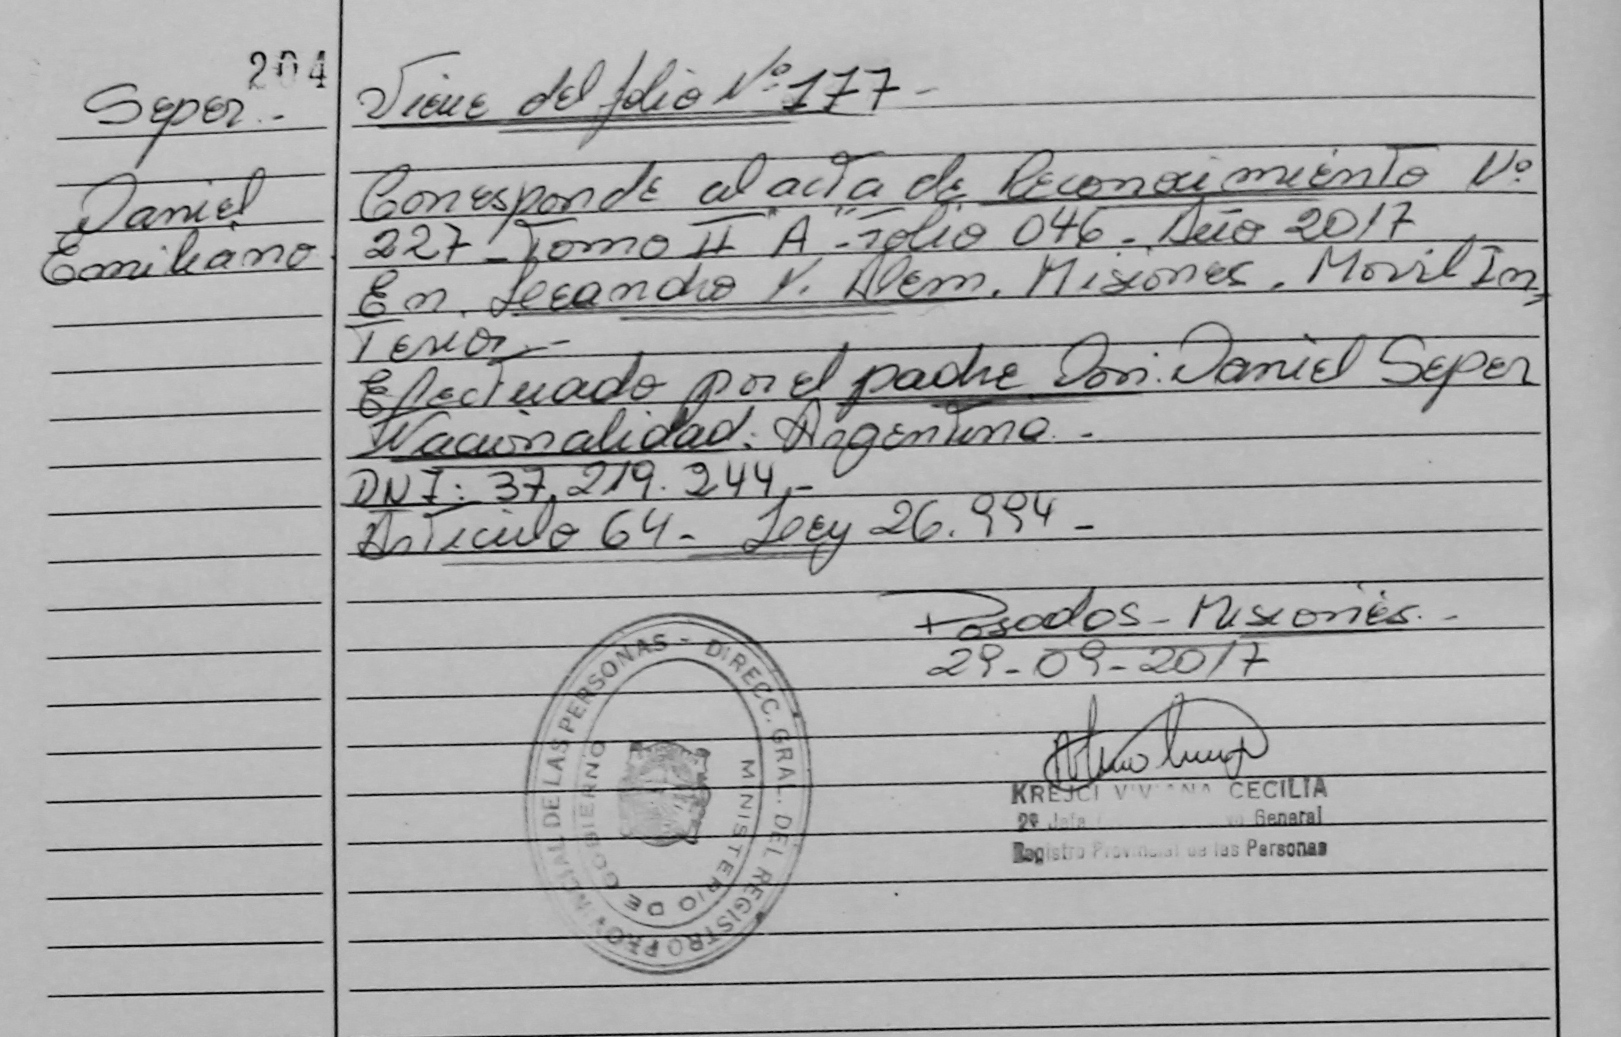 204
Seper.-
Daniel
Emiliano
Viene del folio Nº 177-
Corresponde al acta de Reconocimiento Nº
227- Tomo II "A"- Folio 046- Año 2017
En. Leandro N. Alem. Misiones. Movil In
Terior.-
Efectuado por el padre Don: Daniel Seper
Nacionalidad: Argentina.-
DNI: 37.219.244.-
Articulo 64- Ley 26.994-
Posadas- Misiones.-
29-09-2017
DIRECC. GRAL. DEL REGISTRO PROVINCIAL DE LAS PERSONAS -
MINISTERIO DE GOBIERNO
KREJCI VIVIANA CECILIA
2º Jefa General
Registro Provincial de las Personas